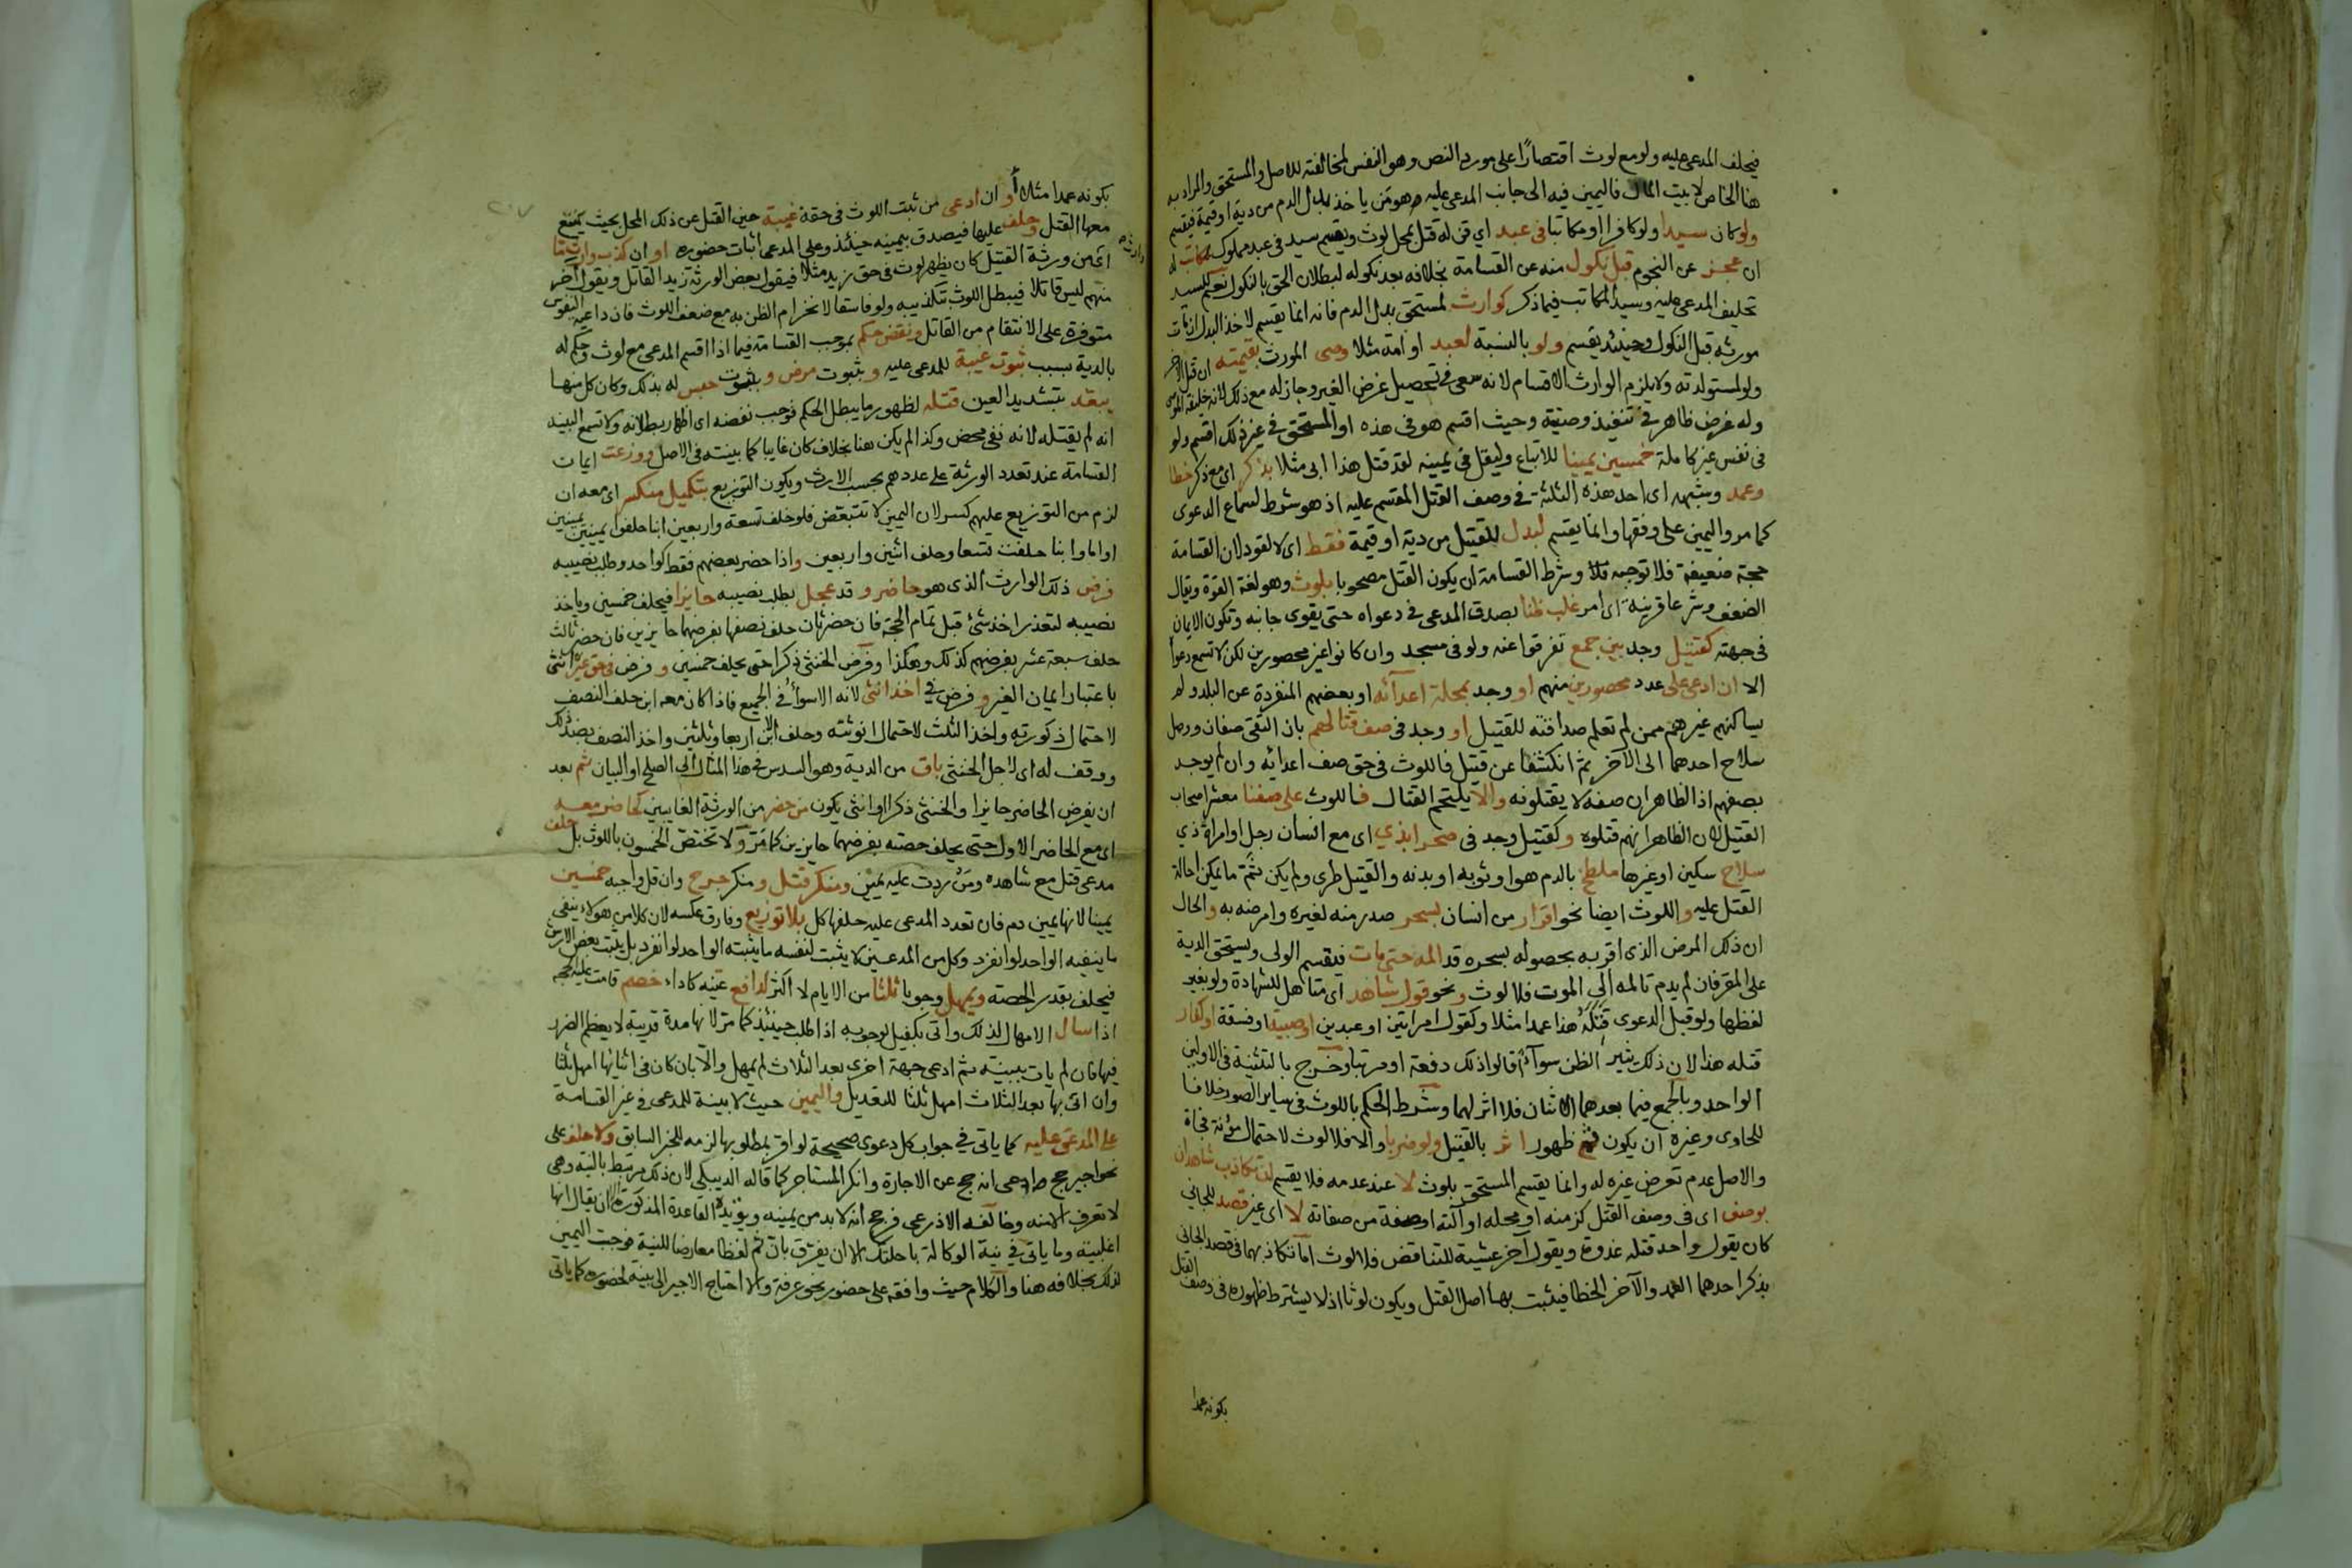 فيحلف المدعى عليه ولو مع لوث اقتصارًا على مورد النص وهو النفس لمخالفته للاصل والمستحق والمراد به
هنا الخاص لا بيت المال فاليمين فيه الى جانب المدعى عليه هو من ياخذ بدل الدم من دية او قيمة فيقسم
ولو كان سيدا ولو كافرا او مكاتبا فى عبد اي قن له قتل بمحل لوث ويقسم سيد فى عبد مملوك لمكاتب له
ان عجز عن النجوم قبل نكول منه عن القسامة بخلافه بعد نكوله لبطلان الحق بالنكول نعم للسيد
تحليف المدعى عليه وسيد المكاتب فيما ذكر كوارث لمستحق بدل الدم فانه انما يقسم لاخذ البدل ان مات
مورثه قبل النكول وحينئذ يقسم ولو بالنسبة لعبد او امة مثلا وصى المورث بقيمته ان قتل لاخر
ولو لمستولدته ولا يلزم الوارث الاقسام لانه سعى فى تحصيل غرض الغير وجاز له مع ذلك لانه خليفة المورث
وله غرض ظاهر فى تنفيذ وصيته وحيث اقسم هو فى هذه او المستحق فى غير ذلك اقسم ولو
فى نفس غير كاملة خمسين يمينا للاتباع وليقل فى يمينه لقد قتل هذا ابى مثلا بذكر اى مع ذكر خطا
وعمد وشبهه اى احد هذه الثلثة فى وصف القتل المقسم عليه اذ هو شرط لسماع الدعوى
كما مر واليمين على وفقها وانما يقسم لبدل للقتيل من دية او قيمة فقط اى لا لقود لان القسامة
حجة ضعيفة فلا توجبه وشرط القسامة ان يكون القتل مصحوبا بلوث وهو لغة القوة ويقال
الضعف وشرعا قرينة اى امر غلب ظنا بصدق المدعى فى دعواه حتى يقوى جانبه وتكون الايمان
فى جهته كقتيل وجد بين جمع تفرقوا عنه ولو فى مسجد وان كانوا غير محصورين لكن لا تسمع دعواه
الا ان ادعى على عدد محصورين منهم او وجد بمحلة اعدائه او بعضهم المنفردة عن البلد ولم
يساكنهم غيرهم ممن لم تعلم صداقته للقتيل او وجد فى صف قتالهم بان التقى صفان ووصل
سلاح احدهما الى الآخر ثم انكشفا عن قتيل فاللوث فى حق صف اعدائه وان لم يوجد
بصفهم اذ الظاهر ان صفه لا يقتلونه والا يلتحم القتال فاللوث على صفنا معشر اصحاب
القتيل لان الظاهر انهم قتلوه وكقتيل وجد فى صحرا بذي اى مع انسان رجل او امراة ذي
سلاح سكين او غيرها ملطخ بالدم هو او ثوبه او بدنه والقتيل طرى ولم يكن ثم ما يمكن احالة
القتل عليه واللوث ايضا نحو اقرار من انسان بسحر صدر منه لغيره وامرضه به والحال
ان ذلك المرض الذى اقر به بحصوله بسحره قد المه حتى مات فيقسم الولى ويستحق الدية
على المقر فان لم يدم تالمه الى الموت فلا لوث ونحو قول شاهد اى متاهل للشهادة ولو بغير
لفظها ولو قبل الدعوى قتله هذا عمدا مثلا وكقول امراتين او عبدين او صبية او فسقة او كفار
قتله هذا لان ذلك يثير الظن سواء قالوا ذلك دفعة او مرتبا وخرج بالتثنية فى الاولين
الواحد وبالجمع فيما بعدهما الاثنان فلا اثر لهما وشرط الحكم باللوث فى سائر الصور خلافا
للحاوى وغيره ان يكون ثم ظهور اثر بالقتيل ولو ضربا والا فلا لوث لاحتمال موته فجاة
والاصل عدم تعرض غيره له وانما يقسم المستحق بلوث لا عند عدمه فلا يقسم لتكاذب شاهدان
بوصف اى فى وصف القتل كزمنه او محله او آلته او صفة من صفاته لا اى غير قصد للجانى
كان يقول واحد قتله غدوة ويقول آخر عشية للتناقض فلا لوث اما تكاذبهما فى قصد الجانى
بذكر احدهما العمد والآخر الخطا فيثبت بهما اصل القتل ويكون لوثا اذ لا يشترط ظهوره فى وصف القتل
بكونه عمدا
بكونه عمدا مثلا او ان ادعى من ثبت اللوث فى حقه غيبة حين القتل عن ذلك المحل بحيث يمتنع
معها القتل وحلف عليها فيصدق بيمينه حينئذ وعلى المدعى اثبات حضوره او ان كذب وارث ما
اى من ورثة القتيل كان يظهر لوث فى حق زيد مثلا فيقول بعض الورثة زيد القاتل ويقول آخر
منهم ليس قاتلا فيبطل اللوث بتكذيبه ولو فاسقا لانخرام الظن به مع ضعف اللوث فان داعية النفوس
متوفرة على الانتقام من القاتل ونقض حكم بموجب القسامة فيما اذا اقسم المدعى مع لوث وحكم له
بالدية بسبب ثبوت غيبة للمدعى عليه وبثبوت مرض وبثبوت حبس له بذلك وكان كل منهما
يبعّد بتشديد العين قتله لظهور ما يبطل الحكم فوجب نقضه اى اظهار بطلانه ولا تسمع البينة
انه لم يقتله لانه نفى محض وكذا لم يكن هنا بخلاف كان غايبا كما بينته فى الاصل ووزعت ايمان
القسامة عند تعدد الورثة على عددهم بحسب الارث ويكون التوزيع بتكميل منكسر اى معه ان
لزم من التوزيع عليهم كسر لان اليمين لا تتبعض فلو خلف تسعة واربعين ابنا حلفوا يمينين يمينين
او اما وابنا حلفت تسعا وحلف اثنين واربعين واذا حضر بعضهم فقط كواحد وطلب نصيبه
فرض ذلك الوارث الذى هو حاضر وقد عجل بطلب نصيبه حايزا فيحلف خمسين وياخذ
نصيبه لتعذر اخذ شئ قبل تمام الحجة فان حضر ثان حلف نصفها بفرضهما حايزين فان حضر ثالث
حلف سبعة عشر بفرضهم كذلك وهكذا وفرض الخنثى ذكرا حتى يحلف خمسين وفرض فى حق غيره انثى
باعتبار ايمان الغير وفرض فى اخذ انثى لانه الاسوأ فى الجميع فاذا كان معه ابن حلف النصف
لاحتمال ذكورته واخذ الثلث لاحتمال انوثته وحلف الابن اربعا وثلثين واخذ النصف بضد ذلك
ووقف له اى لاجل الخنثى باق من الدية وهو السدس فى هذا المثال الى الصلح او البيان ثم بعد
ان يفرض الحاضر حايزا والخنثى ذكرا او انثى يكون من حضر من الورثة الغايبين كحاضر معه
اى مع الحاضر الاول حتى يحلف حصته بفرضهما حايزين كما مر ولا تختص الخمسون باللوث بل حلف
مدعى قتل مع شاهده ومن ردت عليه يمين ومنكر قتل ومنكر جرح وان قل واجبه خمسين
يمينا لانها يمين دم فان تعدد المدعى عليه حلفها كل بلا توزيع وفارق عكسه لان كلا من هولاء ينفى
ما ينفيه الواحد لو انفرد وكل من المدعين لا يثبت لنفسه ما يثبته الواحد لو انفرد بل يثبت بعض الارش
فيحلف بقدر الحصة ويمهل وجوبا ثلثا من الايام لا اكثر لدافع عينه كاداء خصم قامت عليه حجة
اذا سال الامهال لذلك واتى بكفيل لوجوبه اذا طلب حينئذ كما مر لانها مدة قريبة لا يعظم الضرر
فيها فان لم يات ببينة ثم ادعى جهة اخرى بعد الثلاث لم يمهل والا بان كان فى اثنائها امهل ثلثا
وان اتى بها بعد الثلاث امهل ثلثا للتعديل واليمين حيث لا بينة للمدعى فى غير القسامة
على المدعى عليه كما ياتى فى جواب كل دعوى صحيحة لو اقر بمطلوبها لزمه للخبر السابق ولا حلف على
نحو اجير حج ادعى انه حج عن الاجارة وانكر المستاجر كما قاله الدبيلى لان ذلك مرتبط بالنية وهى
لا تعرف الا منه وخالفه الاذرعى فرجح انه لا بد من يمينه ويؤيده القاعدة المذكورة الا ان يقال انها
اغلبية وما ياتى فى نية الوكالة باحلتك الا ان يفرق بان ثم لفظا معارضا للنية فوجب اليمين
لذلك بخلافه هنا والكلام حيث وافقه على حضور نحو عرفة والا احتاج الاجير الى بينة لحضوره كما ياتى